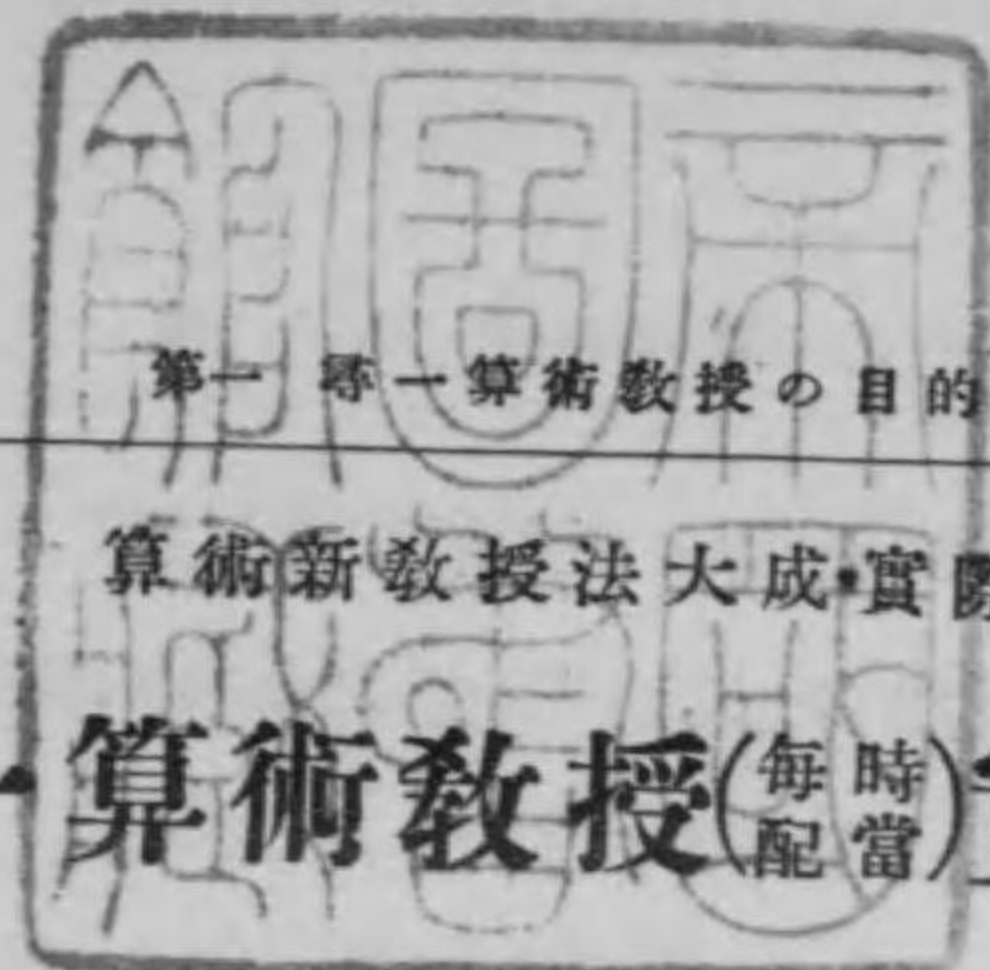 第一 尋一算術教授の目的
算術新教授法大成・實際
算術教授(毎時配當)